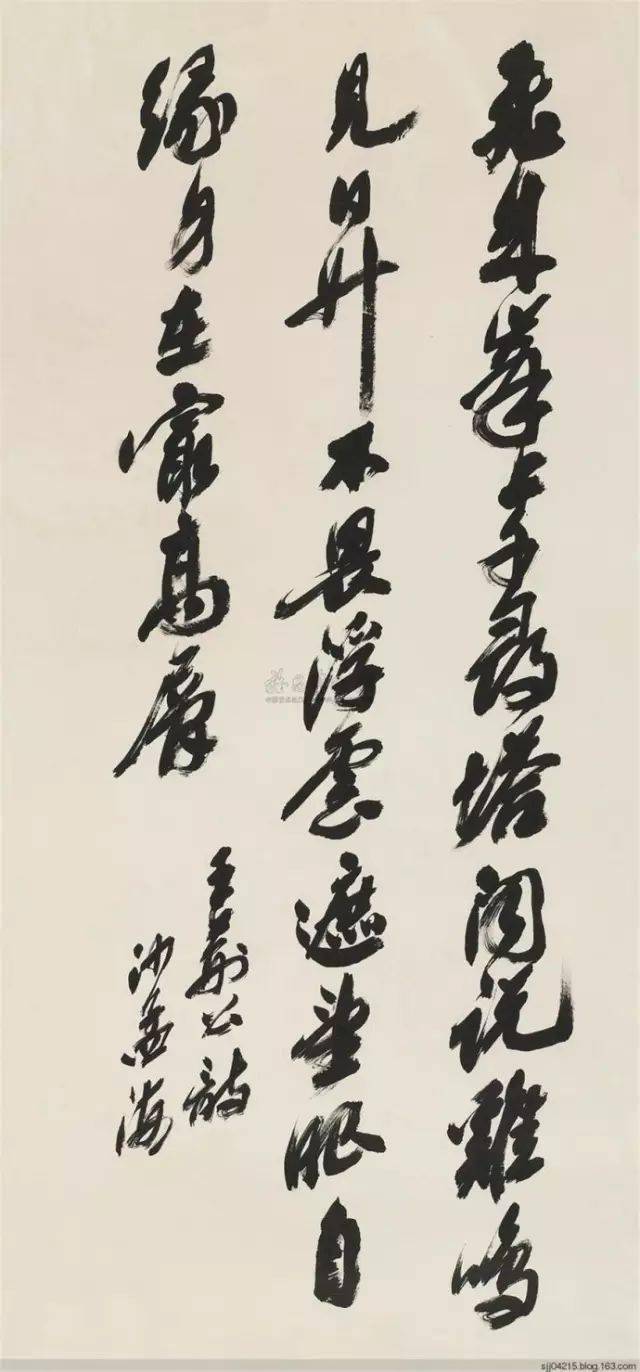 飛來峯上千尋塔聞說雞鳴
見日升不畏浮雲遮望眼自
緣身在最高層
王荊公詩
沙孟海
sjj04215.blog.163.com